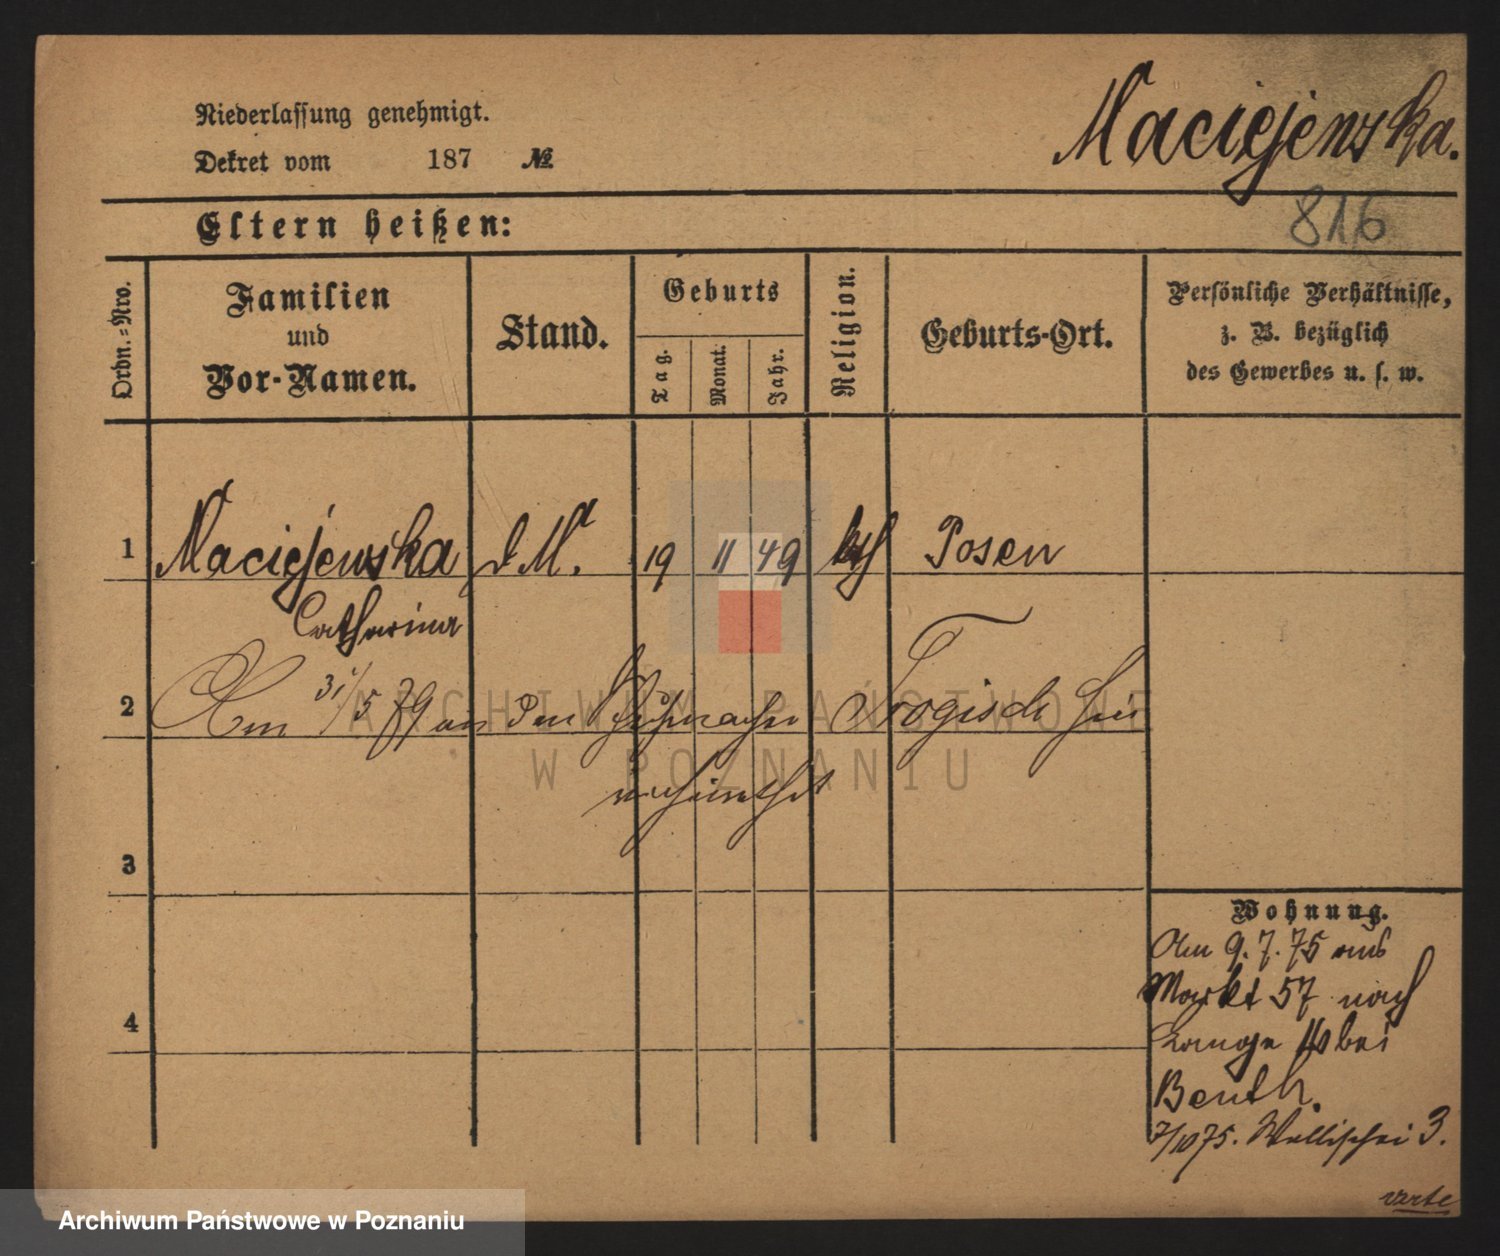 Niederlassung genehmigt.
Dekret vom 187 №
Maciejewska.
816
Eltern heißen:
Ordn.-Nro.
Familien
und
Vor-Namen.
Stand.
Geburts
Tag.
Monat.
Jahr.
Religion.
Geburts-Ort.
Persönliche Verhältnisse,
z. B. bezüglich
des Gewerbes u. s. w.
1 Maciejewska d. Md. 19 11 49 kth Posen
Catharina
2 Am 31/5 79 an den Schuhmacher hier
verheirathet
3
4
Wohnung.
Am 9. 7. 75 aus
Markt 57 nach
Lange 10 bei
Benth.
7/10 75. Wallischei 3.
verte
ARCHIWUM PAŃSTWOWE
W POZNANIU
Archiwum Państwowe w Poznaniu